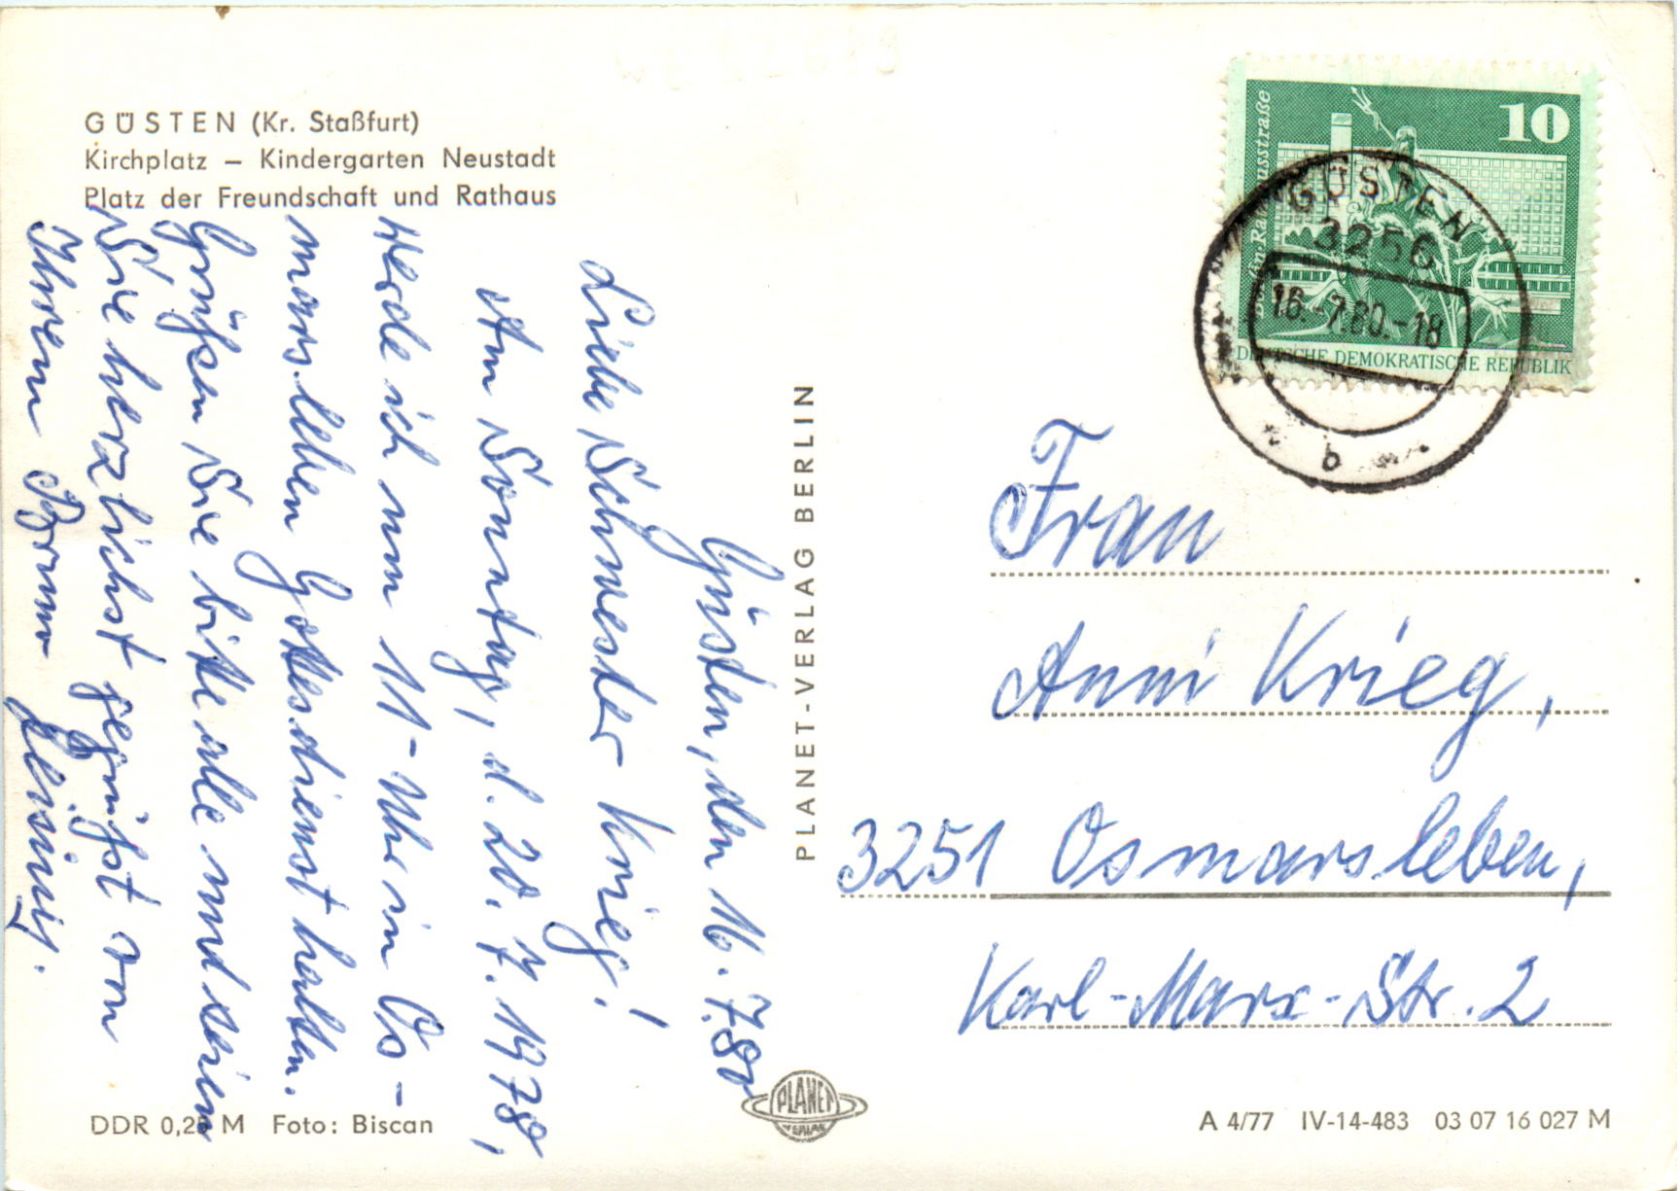 GÜSTEN (Kr. Staßfurt)
Kirchplatz – Kindergarten Neustadt
Platz der Freundschaft und Rathaus
Güsten, den 16.7.80
Liebe Schwester Krieg!
Am Sonntag, d. 20.7.1978,
werde ich um 11-Uhr in Os-
marsleben Gottesdienst halten.
Grüßen Sie bitte alle und seien
Sie herzlichst gegrüßt von
Ihrem Bruno
DDR 0,25 M Foto: Biscan
PLANET-VERLAG BERLIN
PLANET
VERLAG
10
DEUTSCHE DEMOKRATISCHE REPUBLIK
GÜSTEN
3256
16.-7.80.-18
b
Frau
Anni Krieg,
3251 Osmarsleben,
Karl-Marx-Str. 2
A 4/77 IV-14-483 03 07 16 027 M